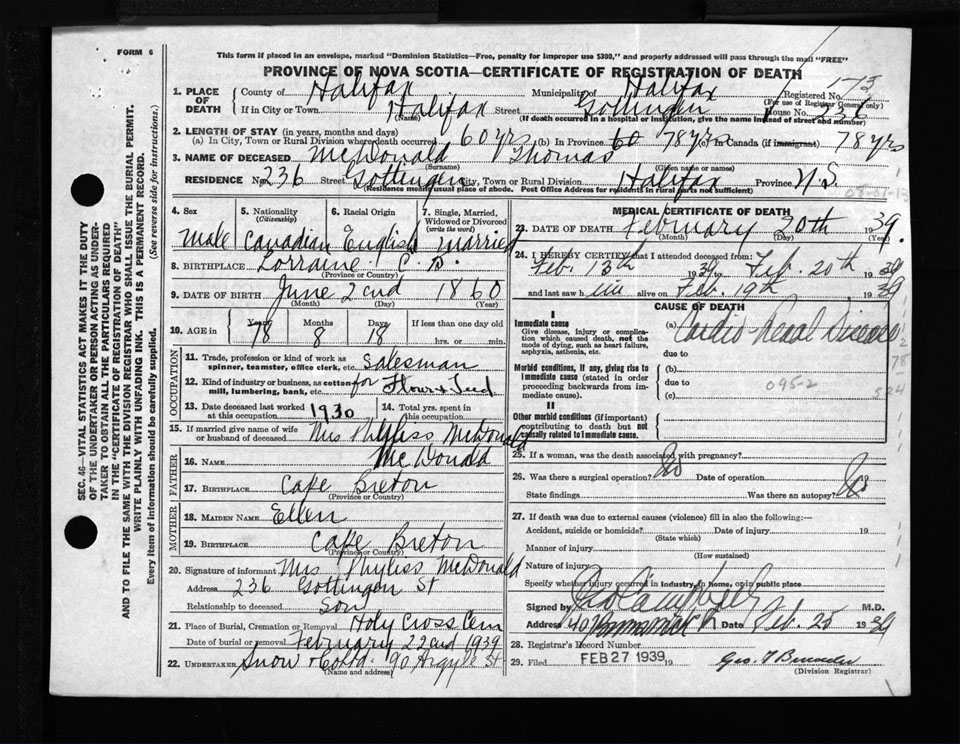 FORM 6
This form if placed in an envelope, marked "Dominion Statistics—Free, penalty for improper use $300," and properly addressed will pass through the mail "FREE"
PROVINCE OF NOVA SCOTIA—CERTIFICATE OF REGISTRATION OF DEATH
173
1. PLACE OF DEATH County of Halifax Municipality of Halifax Registered No. (For use of Registrar General only)
If in City or Town Halifax (Name) Street Gottingen House No. 236
(If death occurred in a hospital or institution, give the name instead of street and number)
2. LENGTH OF STAY (in years, months and days)
(a) In City, Town or Rural Division where death occurred 60 yrs (b) In Province 60 78 yrs (c) In Canada (if immigrant) 78 yrs
3. NAME OF DECEASED McDonald (Surname) Thomas (Given name or names)
RESIDENCE No. 236 Street Gottingen City, Town or Rural Division Halifax Province N.S.
(Residence means usual place of abode. Post Office Address for residents in rural parts not sufficient)
4. Sex 5. Nationality (Citizenship) 6. Racial Origin 7. Single, Married, Widowed or Divorced (write the word)
Male Canadian English Married
8. BIRTHPLACE Lorraine C.B. (Province or Country)
9. DATE OF BIRTH June (Month) 2nd (Day) 1860 (Year)
10. AGE in Years 78 Months 8 Days 18 If less than one day old hrs. or min.
OCCUPATION
11. Trade, profession or kind of work as spinner, teamster, office clerk, etc. Salesman
12. Kind of industry or business, as cotton mill, lumbering, bank, etc. for Flour & Feed
13. Date deceased last worked at this occupation 1930 14. Total yrs. spent in this occupation
15. If married give name of wife or husband of deceased Mrs Phyliss McDonald
FATHER
16. NAME McDonald
17. BIRTHPLACE Cape Breton (Province or Country)
MOTHER
18. MAIDEN NAME Ellen
19. BIRTHPLACE Cape Breton (Province or Country)
20. Signature of informant Mrs Phyliss McDonald
Address 236 Gottingen St
Relationship to deceased Son
21. Place of Burial, Cremation or Removal Holy Cross Cem
Date of burial or removal February 22nd 1939
22. UNDERTAKER Snow & Co Ltd. 90 Argyle St (Name and address)
MEDICAL CERTIFICATE OF DEATH
23. DATE OF DEATH February (Month) 20th (Day) 1939. (Year)
24. I HEREBY CERTIFY that I attended deceased from:
Feb. 13th 1939 to Feb. 20th 1939
and last saw h im alive on Feb. 19th 1939
CAUSE OF DEATH
I
Immediate cause (a) Cardio-Renal Disease
Give disease, injury or complication which caused death, not the mode of dying, such as heart failure, asphyxia, asthenia, etc.
due to
Morbid conditions, if any, giving rise to immediate cause (stated in order proceeding backwards from immediate cause). (b)
due to 095-2
(c)
II
Other morbid conditions (if important) contributing to death but not causally related to immediate cause.
25. If a woman, was the death associated with pregnancy?
26. Was there a surgical operation? No Date of operation 19
State findings Was there an autopsy? No
27. If death was due to external causes (violence) fill in also the following:
Accident, suicide or homicide? (State which) Date of injury 19
Manner of injury (How sustained)
Nature of injury
Specify whether injury occurred in industry, in home, or in public place
Signed by M.D.
Address Date Feb. 25 1939
28. Registrar's Record Number
29. Filed FEB 27 1939 19 Geo. (Division Registrar)
SEC. 46—VITAL STATISTICS ACT MAKES IT THE DUTY
OF THE UNDERTAKER OR PERSON ACTING AS UNDERTAKER
TO OBTAIN ALL THE PARTICULARS REQUIRED
IN THE "CERTIFICATE OF REGISTRATION OF DEATH"
AND TO FILE THE SAME WITH THE DIVISION REGISTRAR WHO SHALL ISSUE THE BURIAL PERMIT.
WRITE PLAINLY WITH UNFADING INK. THIS IS A PERMANENT RECORD.
Every item of information should be carefully supplied. (See reverse side for instructions.)